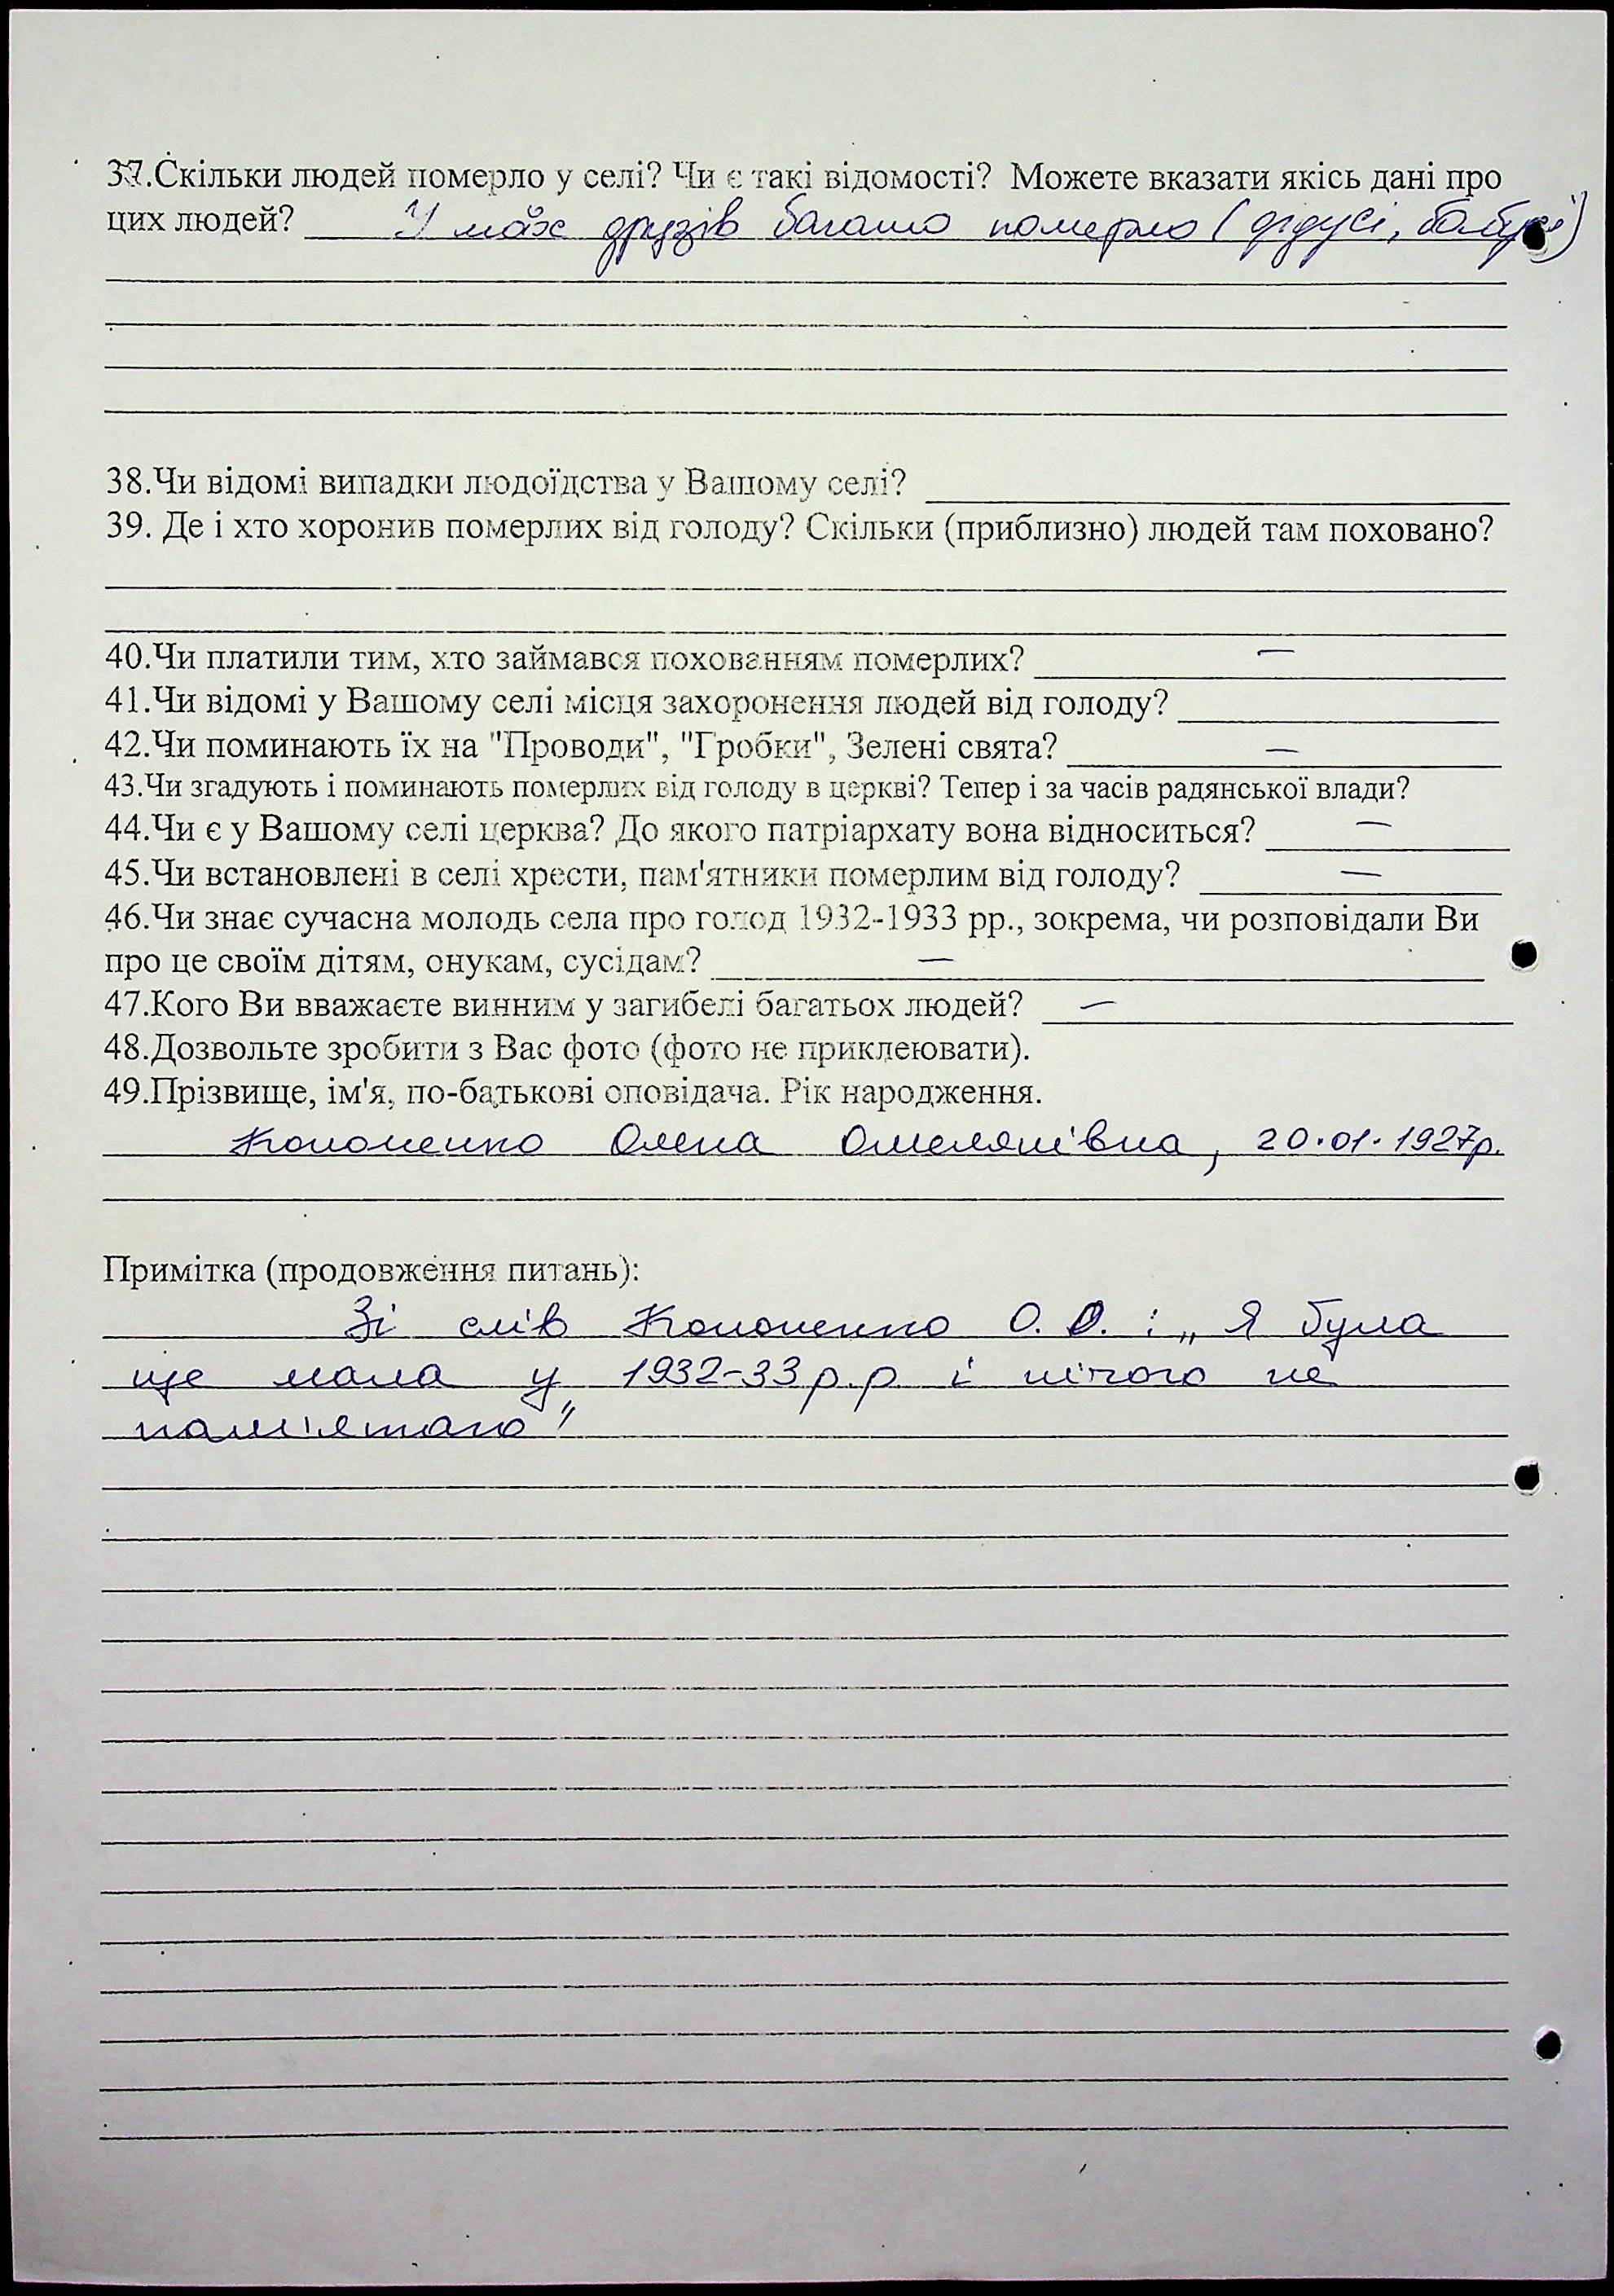 37.Скільки людей померло у селі? Чи є такі відомості? Можете вказати якісь дані про
цих людей? У моїх друзів багато померло (дідусі, бабусі)
38.Чи відомі випадки людоїдства у Вашому селі?
39. Де і хто хоронив померлих від голоду? Скільки (приблизно) людей там поховано?
40.Чи платили тим, хто займався похованням померлих? —
41.Чи відомі у Вашому селі місця захоронення людей від голоду?
42.Чи поминають їх на "Проводи", "Гробки", Зелені свята? —
43.Чи згадують і поминають померлих від голоду в церкві? Тепер і за часів радянської влади?
44.Чи є у Вашому селі церква? До якого патріархату вона відноситься? —
45.Чи встановлені в селі хрести, пам'ятники померлим від голоду? —
46.Чи знає сучасна молодь села про голод 1932-1933 рр., зокрема, чи розповідали Ви
про це своїм дітям, онукам, сусідам? —
47.Кого Ви вважаєте винним у загибелі багатьох людей? —
48.Дозвольте зробити з Вас фото (фото не приклеювати).
49.Прізвище, ім'я, по-батькові оповідача. Рік народження.
Кононенко Олена Омелянівна, 20.01.1927р.
Примітка (продовження питань):
Зі слів Кононенко О. О. : „Я була
ще мала у 1932-33 р.р. і нічого не
пам'ятаю"